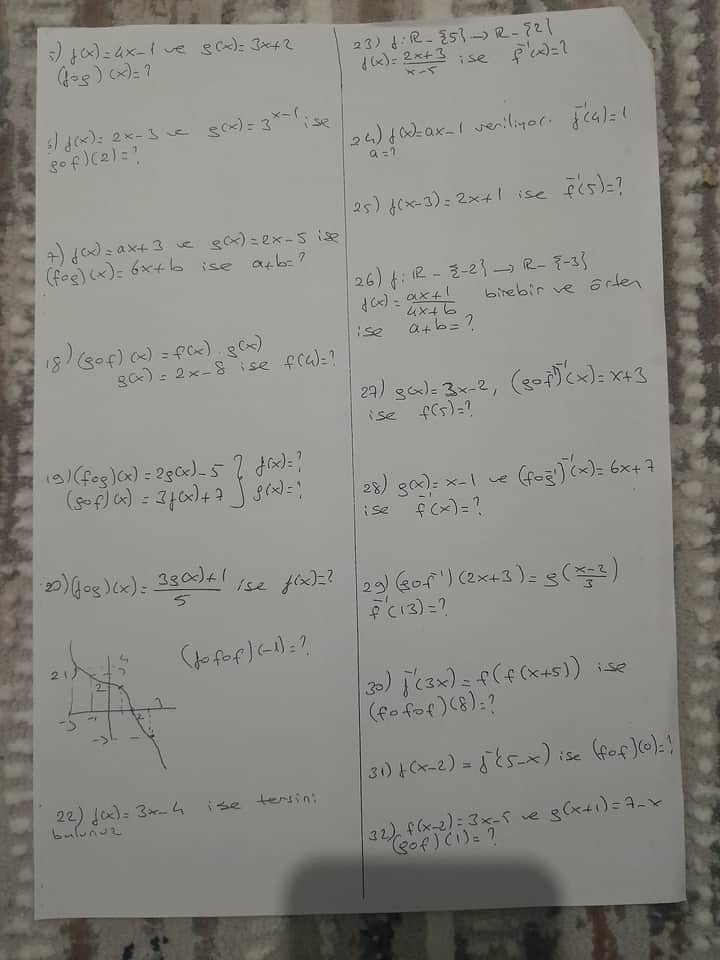 5) f(x)=4x-1 ve g(x)=3x+2
(fog)(x)=?
6) f(x)=2x-3 ve g(x)=3^(x-1) ise
gof)(2)=?
7) f(x)=ax+3 ve g(x)=2x-5 ise
(fog)(x)=6x+b ise a+b=?
18) (gof)(x)=f(x).g(x)
g(x)=2x-8 ise f(4)=?
19) (fog)(x)=2g(x)-5 } f(x)=?
(gof)(x)=3f(x)+7 } g(x)=?
20) (fog)(x)=(3g(x)+1)/5 ise f(x)=?
21) (fofof)(-1)=?
22) f(x)=3x-4 ise tersini
bulunuz
23) f: R-{5}→R-{2}
f(x)=(2x+3)/(x-5) ise f⁻¹(x)=?
24) f(x)=ax-1 veriliyor. f⁻¹(4)=1
a=?
25) f(x-3)=2x+1 ise f⁻¹(5)=?
26) f: R-{-2}→R-{-3}
f(x)=(ax+1)/(4x+b) birebir ve örten
ise a+b=?
27) g(x)=3x-2, (gof⁻¹)⁻¹(x)=x+3
ise f(5)=?
28) g(x)=x-1 ve (fog⁻¹)⁻¹(x)=6x+7
ise f⁻¹(x)=?
29) (gof⁻¹)(2x+3)=g((x-2)/3)
f⁻¹(13)=?
30) f⁻¹(3x)=f(f(x+5)) ise
(fofof)(8)=?
31) f(x-2)=f⁻¹(5-x) ise (fof)(0)=?
32) f(x-2)=3x-5 ve g(x+1)=7-x
(gof)(1)=?